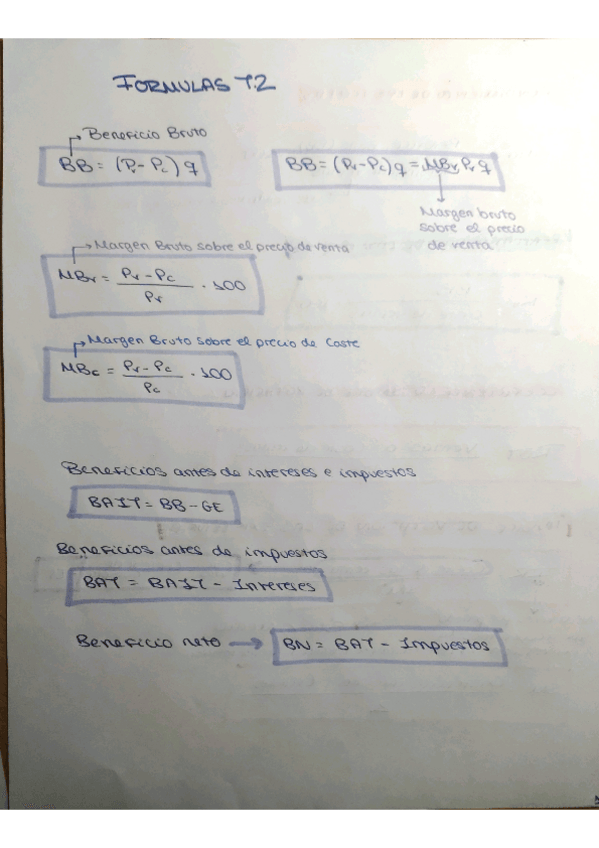 FORMULAS T.2
Beneficio Bruto
BB = (Pv - Pc) q
BB = (Pv - Pc) q = MBv Pv q
Margen bruto
sobre el precio
de venta
Margen Bruto sobre el precio de venta
MBv = Pv - Pc / Pv · 100
Margen Bruto sobre el precio de Coste
MBc = Pv - Pc / Pc · 100
Beneficios antes de intereses e impuestos
BAIT = BB - GE
Beneficios antes de impuestos
BAT = BAIT - Intereses
Beneficio neto → BN = BAT - Impuestos